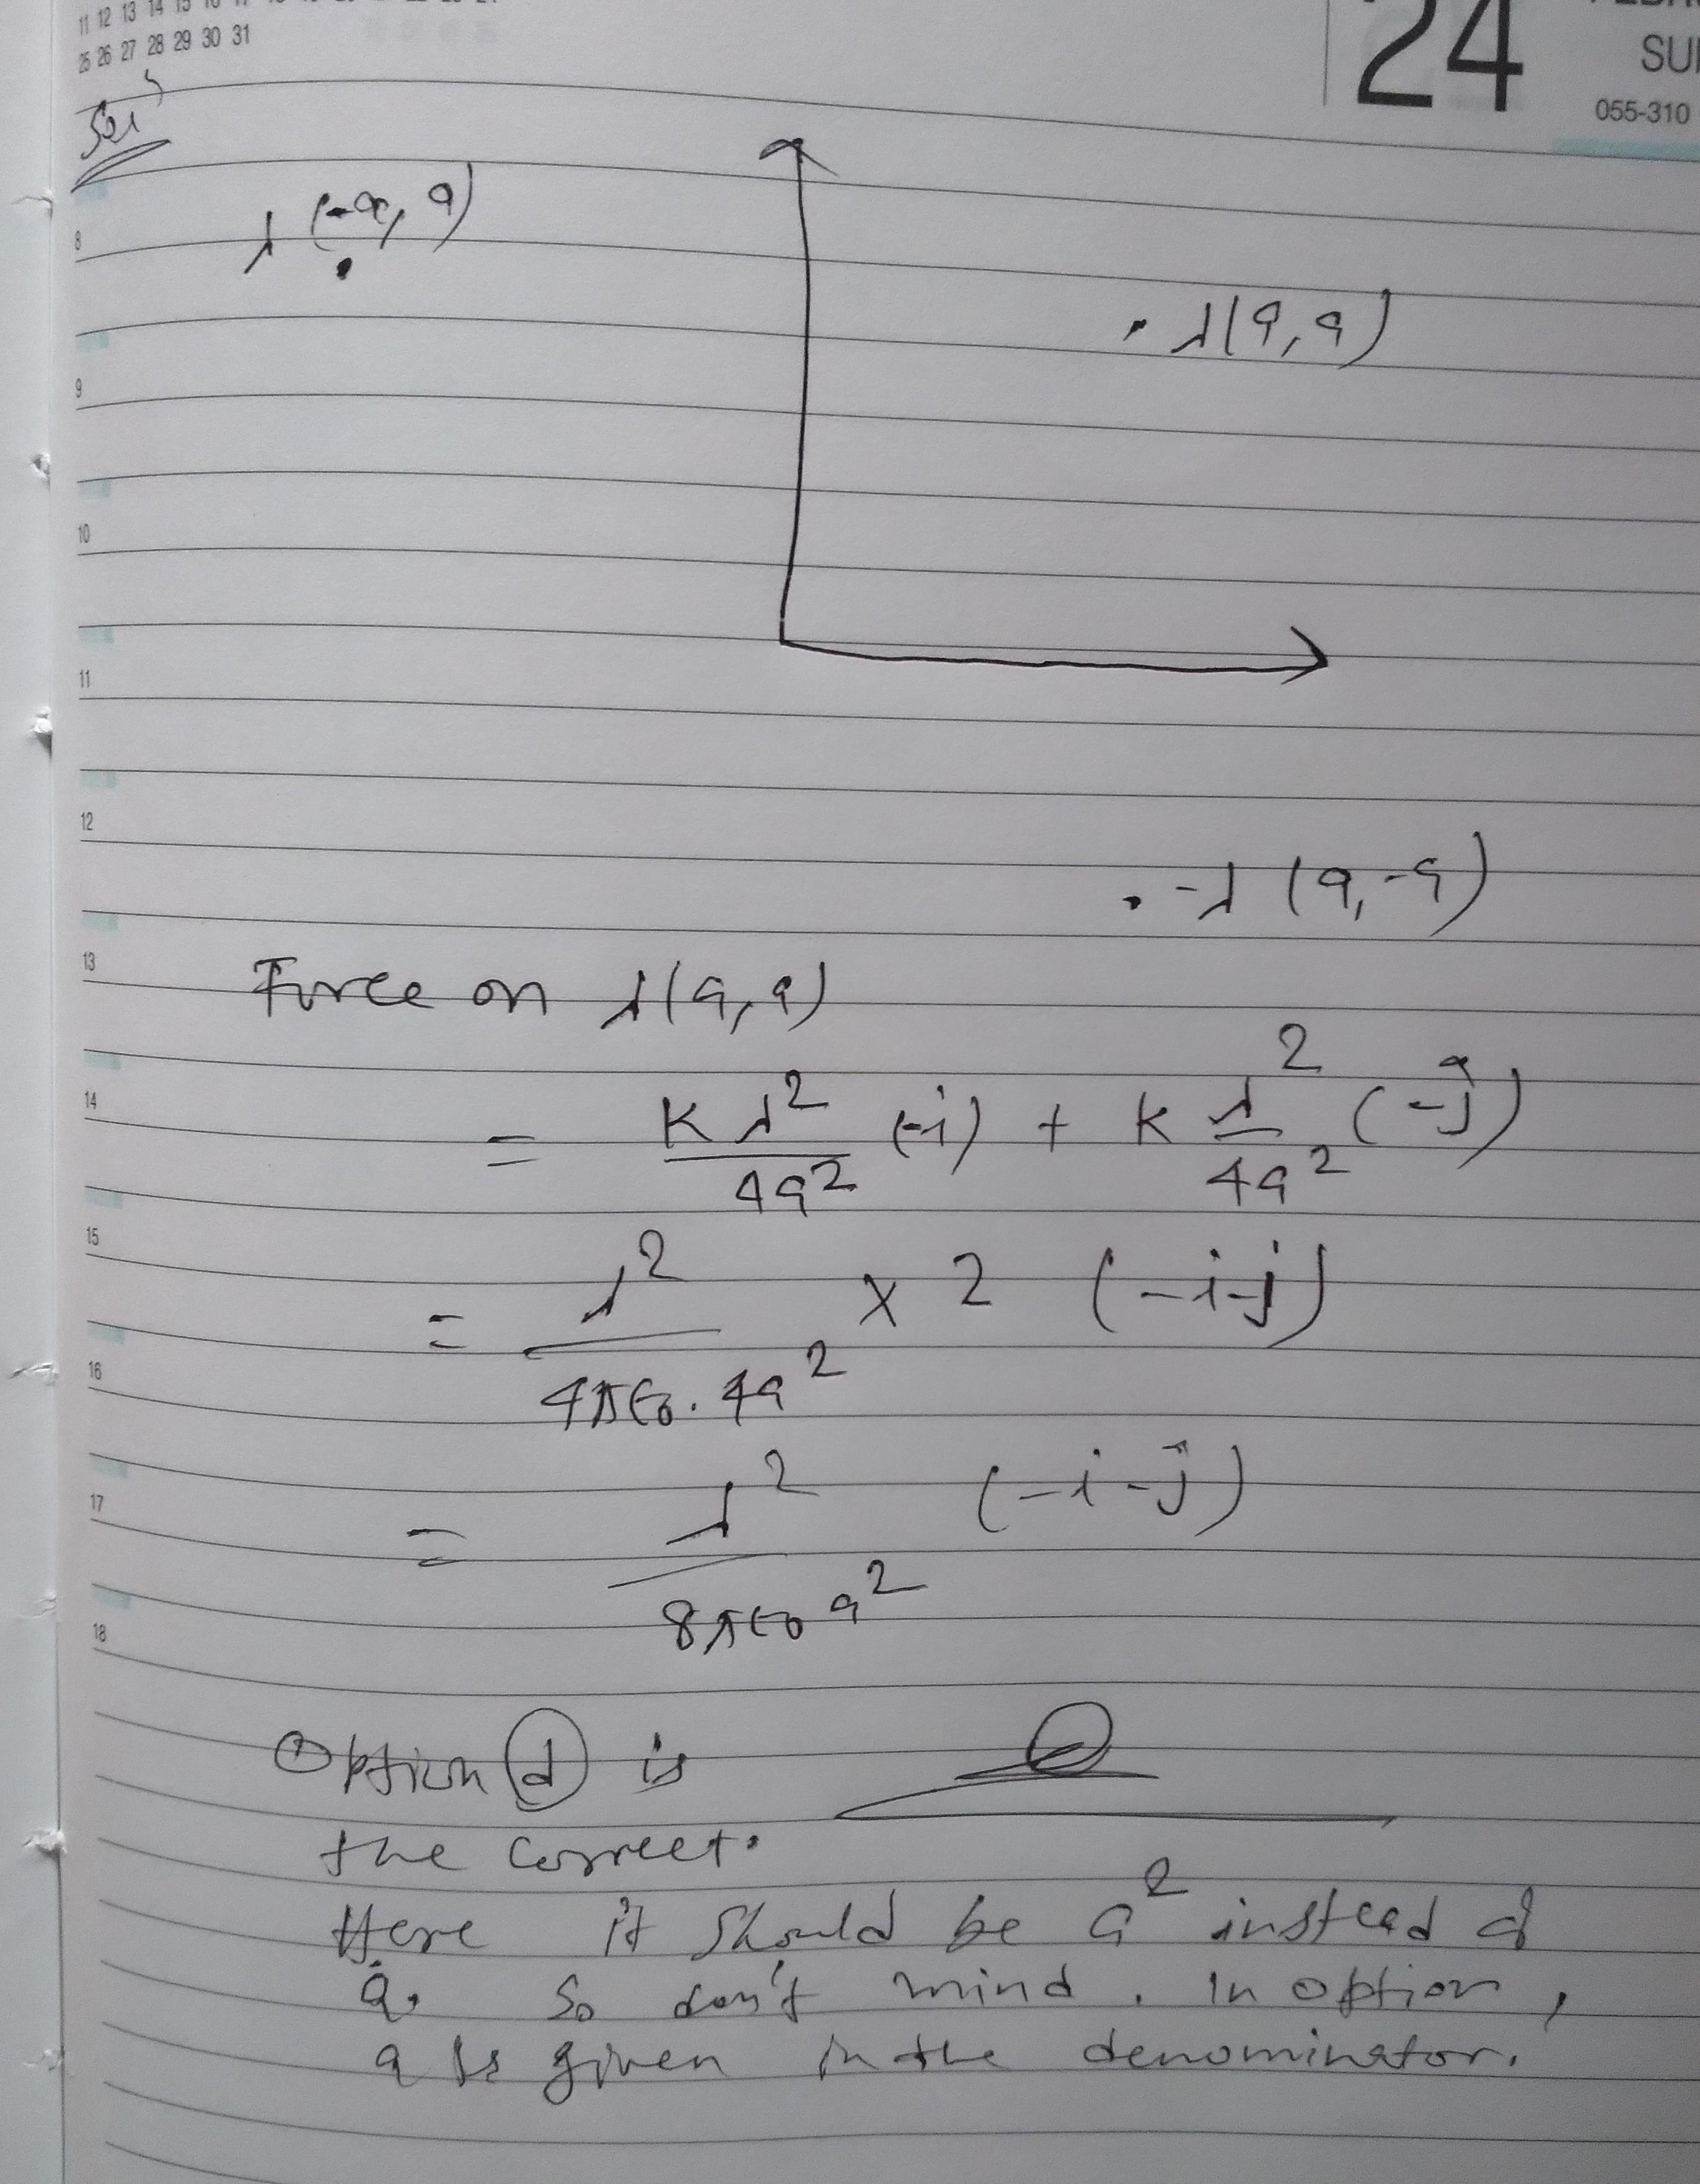 11 12 13 14 15 16 17
25 26 27 28 29 30 31
24
SU
055-310
Sol
λ (-a, a)
. λ(a,a)
. -λ (a,-a)
8
9
10
11
12
13
14
15
16
17
18
Force on λ(a,a)
= Kλ²/4a² (-i) + k λ²/4a² (-ĵ)
= λ²/4πε₀.4a² x 2 (-i-j)
= λ²/8πε₀a² (-i-ĵ)
Option d is
the correct.
Here it should be a² instead of
a. So don't mind. In option,
a is given in the denominator.